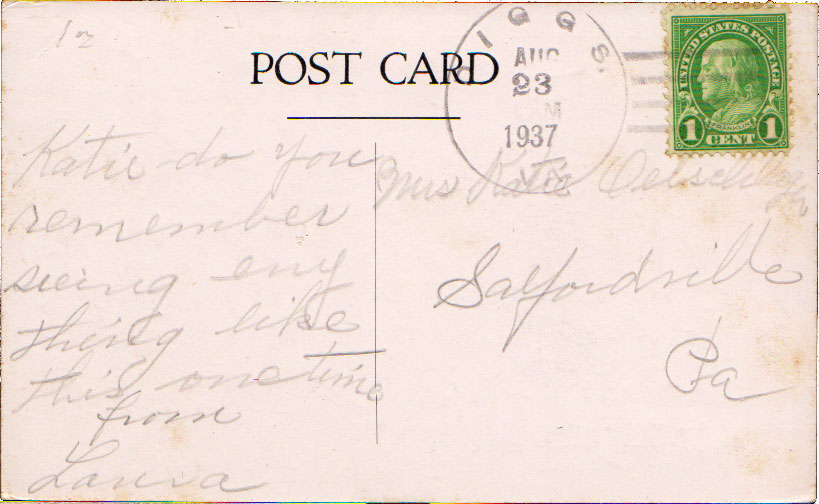 12
POST CARD
AUG
23
M
1937
UNITED STATES POSTAGE
FRANKLIN
1 CENT 1
Katie do you
remember
seeing eny
thing like
this onetime
from
Laura
Mrs Katie
Salfordville
Pa